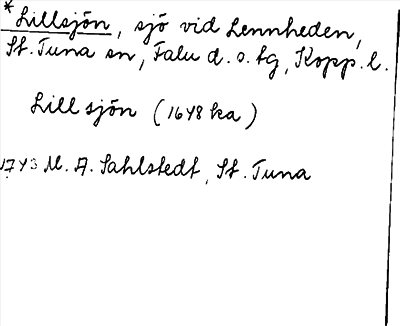 * Lillsjön, sjö vid Lennheden,
St. Tuna sn, Falu d. s. tg, Kopp. l.
Lill sjön (1648 ka)
1743 M. A. Sahlstedt, St. Tuna